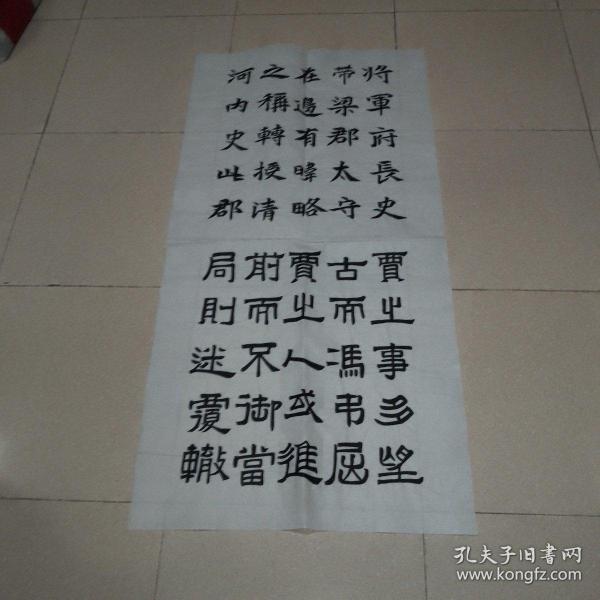 将軍府長史
帶梁郡太守
在邊有暐略
之稱轉授清
河内史此郡
賈之事多望
古而馮弔屈
賈之人或進
前而不御當
局則迷覆轍
孔夫子旧書网
www.kongfz.com